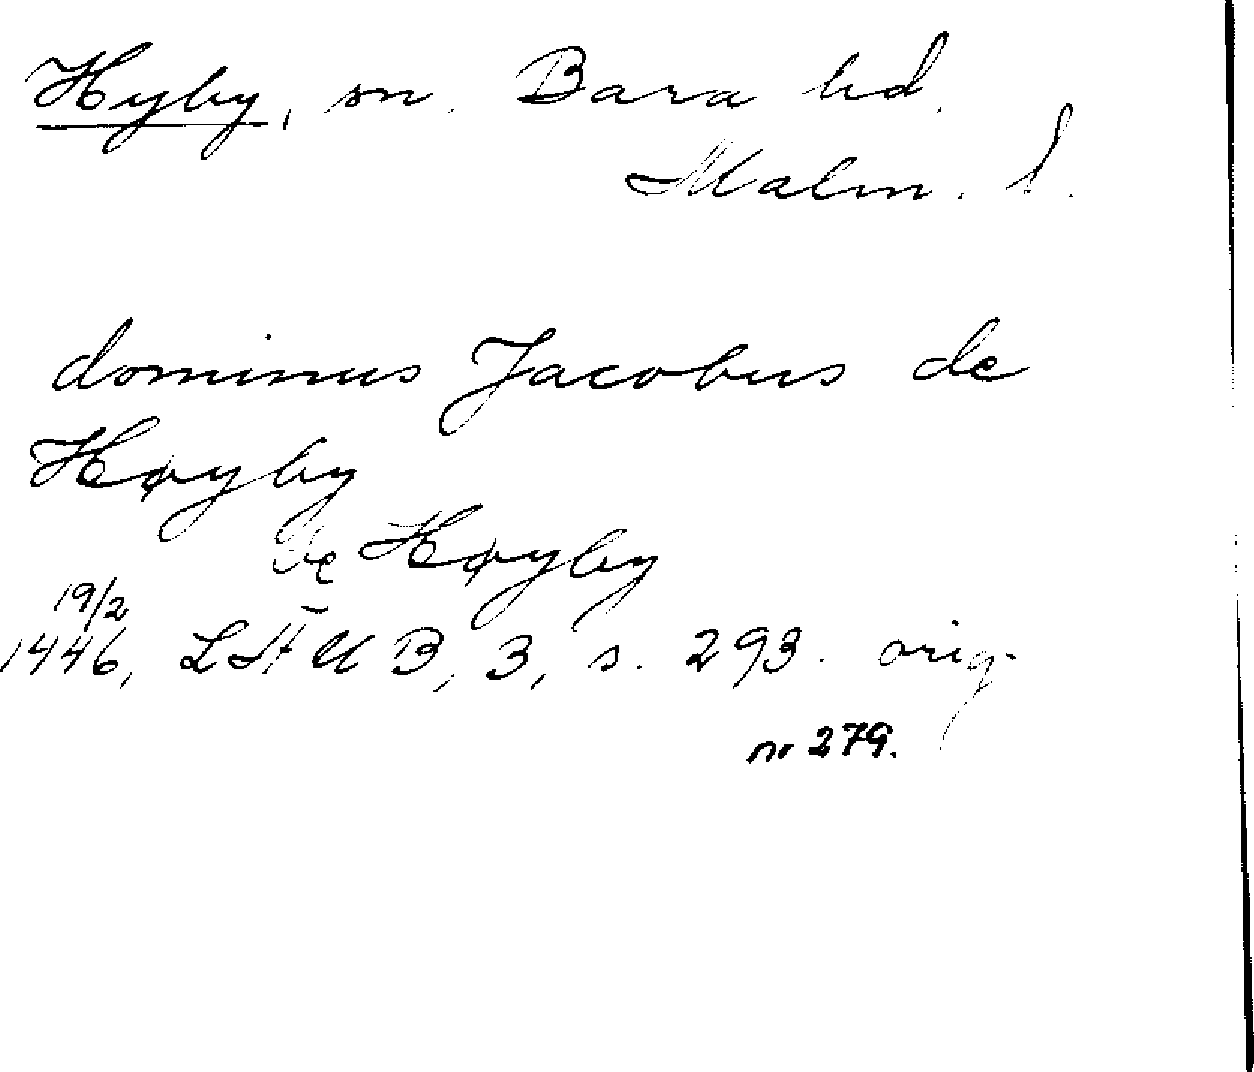 Hyby, sn. Bara hd.
Malm. l.
dominus Jacobus de
Høyby
de Høyby
19/2
1446, LÄUB, 3, s. 293. orig.
nr 279.